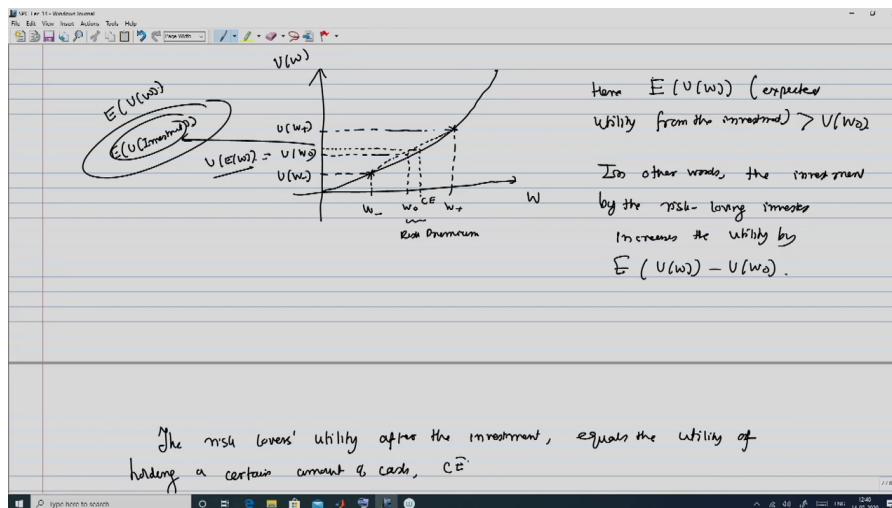 SPC Lec 14 - Windows Journal
File Edit View Insert Actions Tools Help
Page Width
U(W)
E(U(W))
E(U(Investment))
U(W+)
U(E(W)) = U(W0)
U(W-)
W- W0 CE W+ W
Risk Premium
Here E(U(W)) (expected
utility from the investment) > U(W0)
In other words, the investment
by the risk-loving investor
increases the utility by
E(U(W)) - U(W0).
The risk lovers' utility after the investment, equals the utility of
holding a certain amount of cash, CE
Type here to search
ENG
12:40